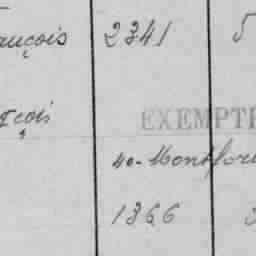 ançois 2341 5
çois EXEMPTÉ
40-Montfor
1366